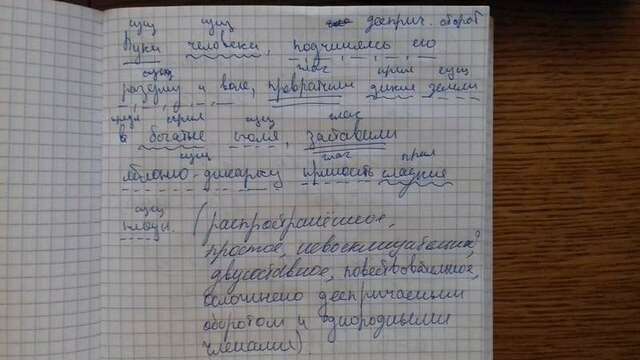 сущ сущ дееприч. оборот
Руки человека, подчиняясь его
сущ глаг прил сущ
разуму и воле, превратили дикие земли
пред прил сущ глаг
в богатые поля, заставили
сущ глаг прил
яблоню-дикарку приносить сладкие
сущ
плоды. (распространённое,
простое, невосклицательное,
двусоставное, повествовательное,
осложнено деепричастным
оборотом и однородными
членами)